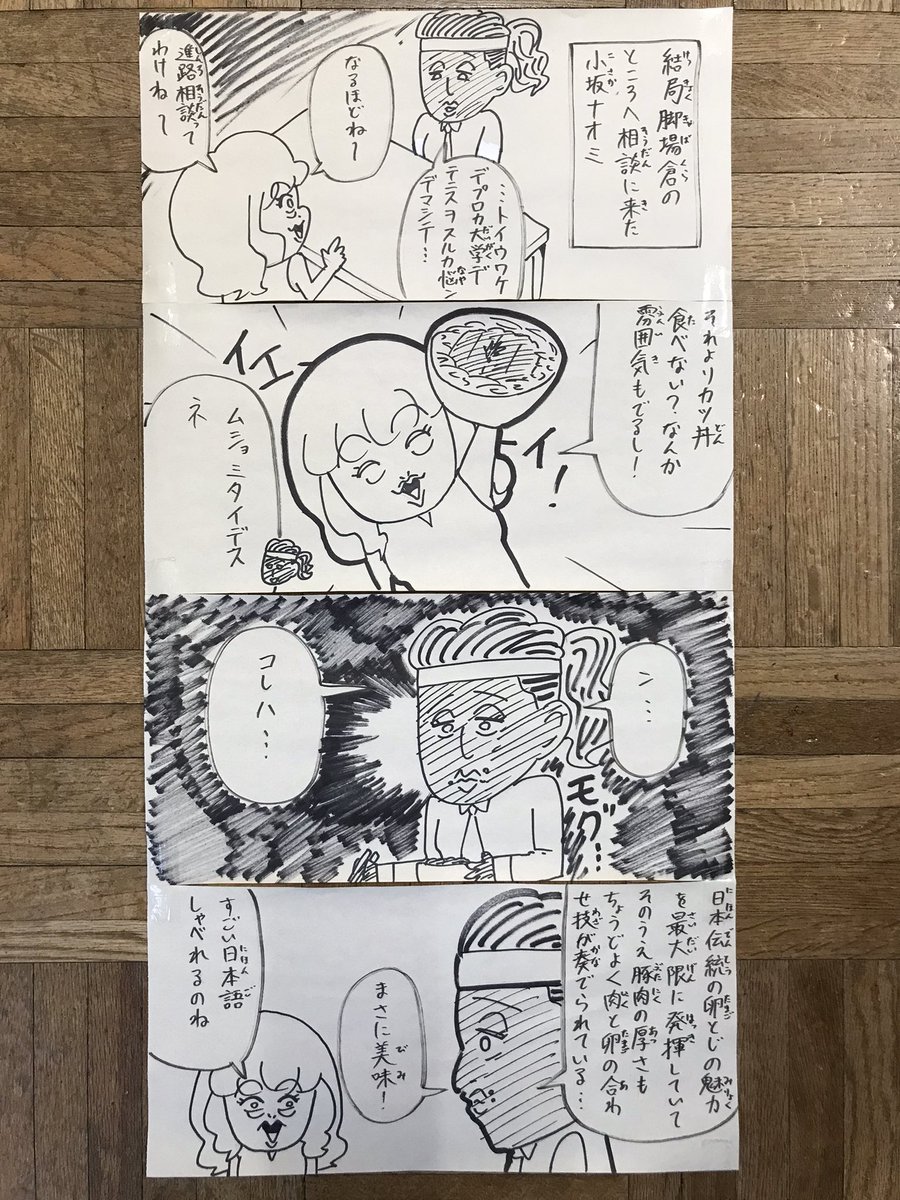 結局脚場倉の
ところへ相談に来た
小坂ナオミ
…トイウワケ
デプロカ大学デ
テニスヲスルカ悩ン
デマシテ…
なるほどね〜
進路相談って
わけね〜
それよりカツ丼
食べない？なんか
雰囲気もでるし！
イエーイ！
ムショミタイデス
ネ
ン…
モグ…
コレハ…
日本伝統の卵とじの魅力
を最大限に発揮していて
そのうえ豚肉の厚さも
ちょうどよく肉と卵の合わ
せ技が奏でられている…
まさに美味！
すごい日本語
しゃべれるのね